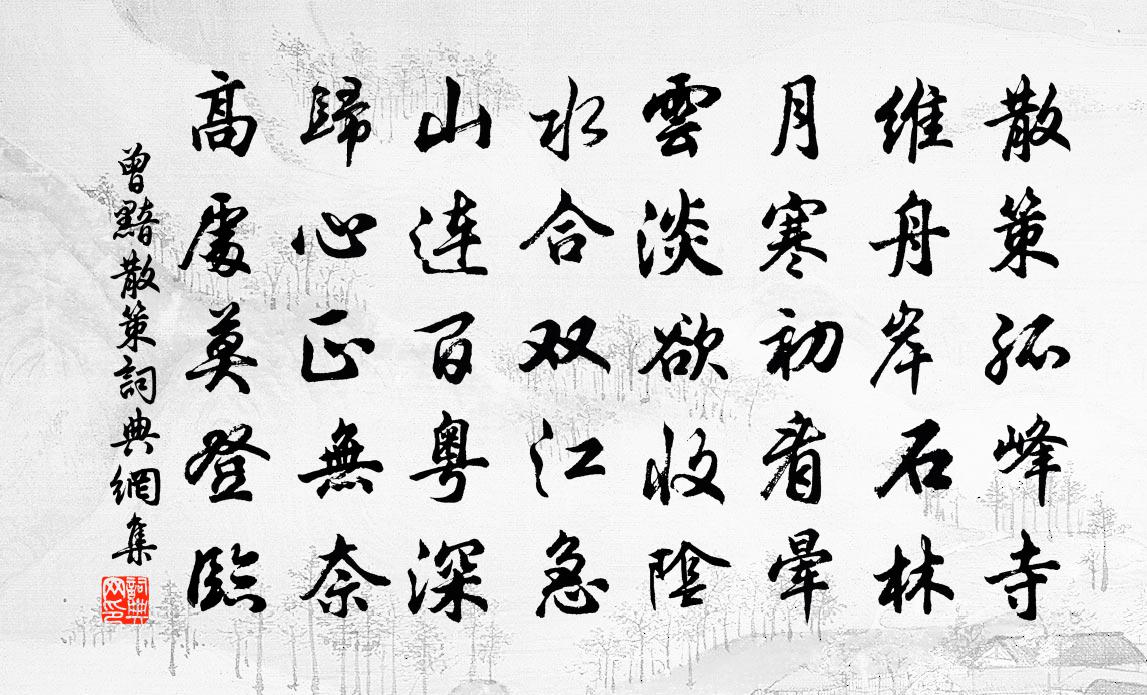 散策孤峰寺
維舟岸石林
月寒初看暈
雲淡欲收陰
水合双江急
山连百粤深
歸心正無奈
高處莫登臨
曾黯散策詞典網集
詞典网印